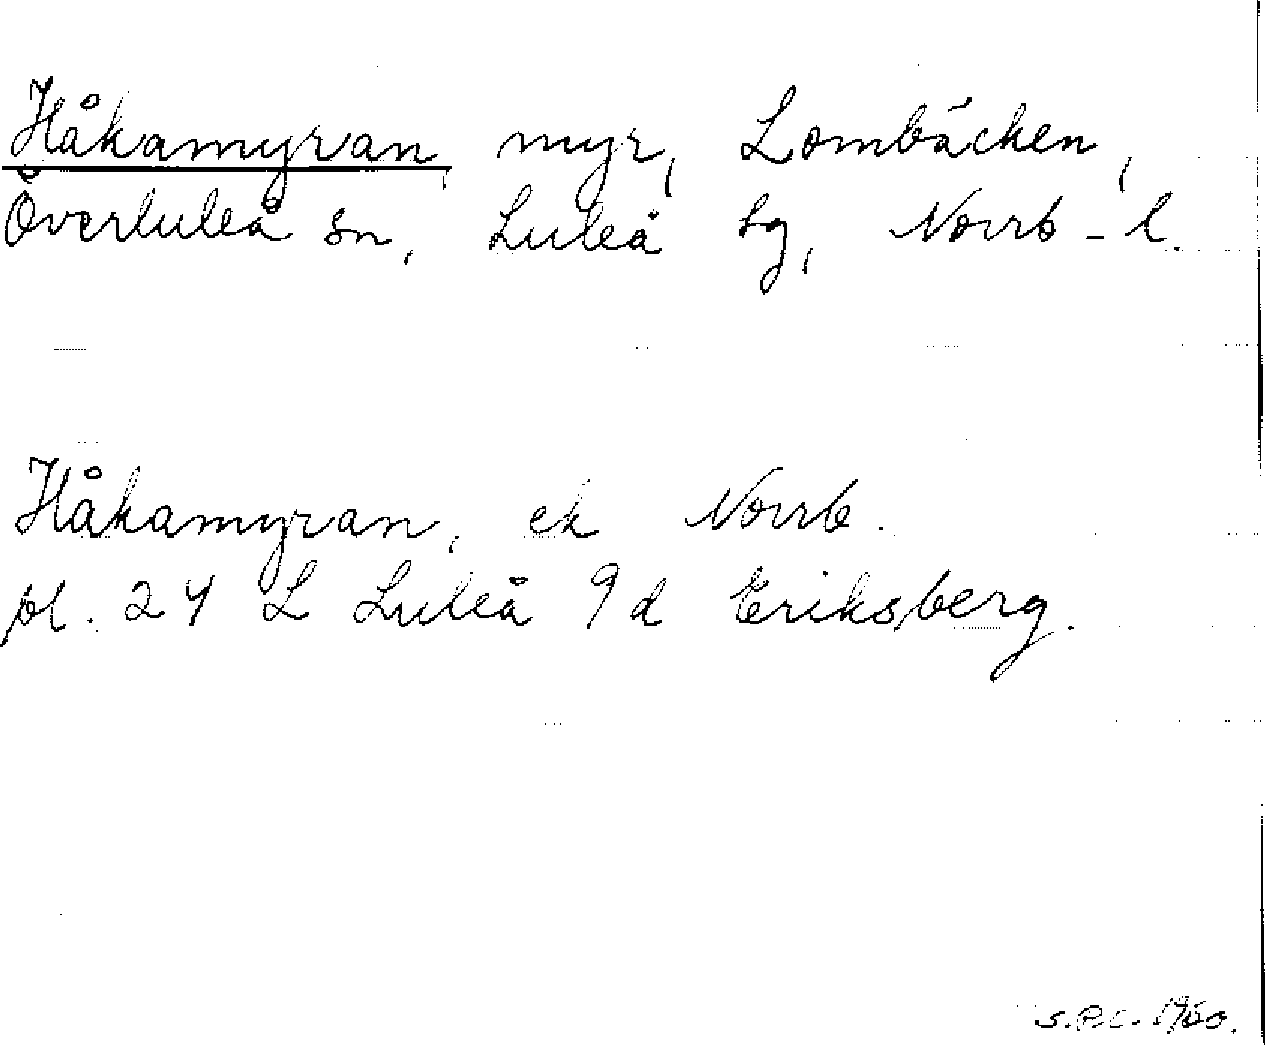 Håkamyran, myr, Lombäcken,
Överluleå sn, Luleå tg, Norrb-l.
Håkamyran, ek Norrb.
bl. 24 L Luleå 9d Eriksberg.
S.R.C. 1960.